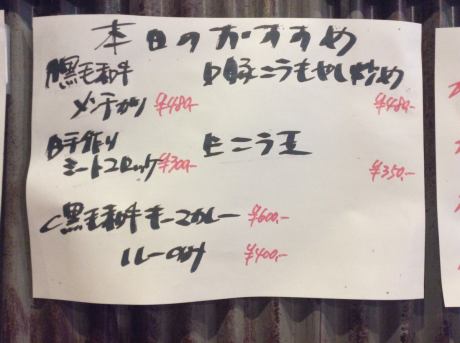 本日のおすすめ
A黒毛和牛
メンチカツ ¥480-
B手作り
ミートコロッケ ¥300-
C黒毛和牛キーマカレー ¥600.-
ルーのみ ¥400.-
D豚ニラもやし炒め
¥480.-
Eニラ玉
¥350.-